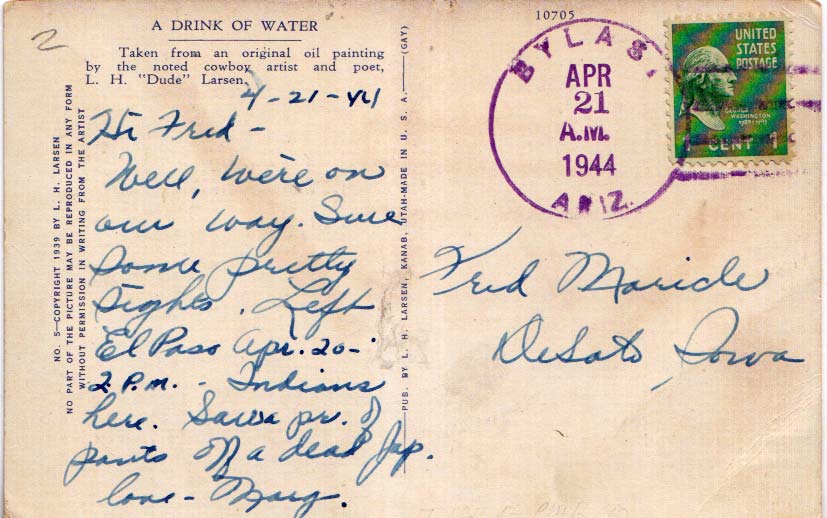 2
A DRINK OF WATER
Taken from an original oil painting
by the noted cowboy artist and poet,
L. H. "Dude" Larsen.
4-21-44
Hi Fred -
Well, we're on
our way. Sure
some pretty
sights. Left
El Paso Apr. 20-
2 P.M. - Indians
here. Saw a pr. of
pants off a dead Jap.
love - Marg.
NO. 5—COPYRIGHT 1939 BY L. H. LARSEN
NO PART OF THE PICTURE MAY BE REPRODUCED IN ANY FORM
WITHOUT PERMISSION IN WRITING FROM THE ARTIST
PUB. BY L. H. LARSEN, KANAB, UTAH-MADE IN U. S. A.—(GAY)
10705
BYLAS,
APR
21
A.M.
1944
ARIZ.
UNITED
STATES
POSTAGE
GEORGE
WASHINGTON
1789-1797
CENT 1
Fred Maricle
DeSoto, Iowa